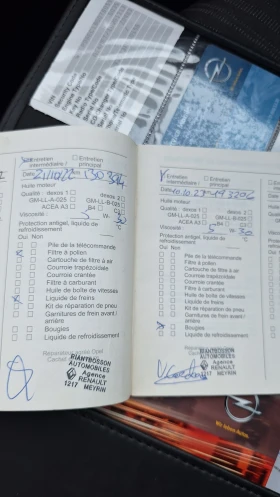 Security Code
Engine Type No
Radio Type/Code
Serial No
OPEL
Entretien
intermédiaire /
Entretien
principal
Date
Huile moteur
Qualité :
dexos 1
dexos 2
GM-LL-A-025
GM-LL-B-025
ACEA A3
B4
C3
Viscosité :
5 W- 30
Protection antigel, liquide de
refroidissement
°C
Oui Non
Pile de la télécommande
Filtre à pollen
Cartouche de filtre à air
Courroie trapézoïdale
Courroie crantée
Filtre à carburant
Huile de boîte de vitesses
Liquide de freins
Kit de réparation de pneu
Garnitures de frein avant/
arrière
Bougies
Liquide de refroidissement
Réparateur agréé Opel
Cachet
BIANTBOSSON
AUTOMOBILES
Agence
RENAULT
1217 MEYRIN
Entretien
intermédiaire /
Entretien
principal
Date
Huile moteur
Qualité :
dexos 1
dexos 2
GM-LL-A-025
GM-LL-B-025
ACEA A3
B4
C3
Viscosité :
5 W- 30
Protection antigel, liquide de
refroidissement
°C
Oui Non
Pile de la télécommande
Filtre à pollen
Cartouche de filtre à air
Courroie trapézoïdale
Courroie crantée
Filtre à carburant
Huile de boîte de vitesses
Liquide de freins
Kit de réparation de pneu
Garnitures de frein avant /
arrière
Bougies
Liquide de refroidissement
Réparateur agréé Opel
Cachet
BIANTBOSSON
AUTOMOBILES
Agence
RENAULT
1217 MEYRIN